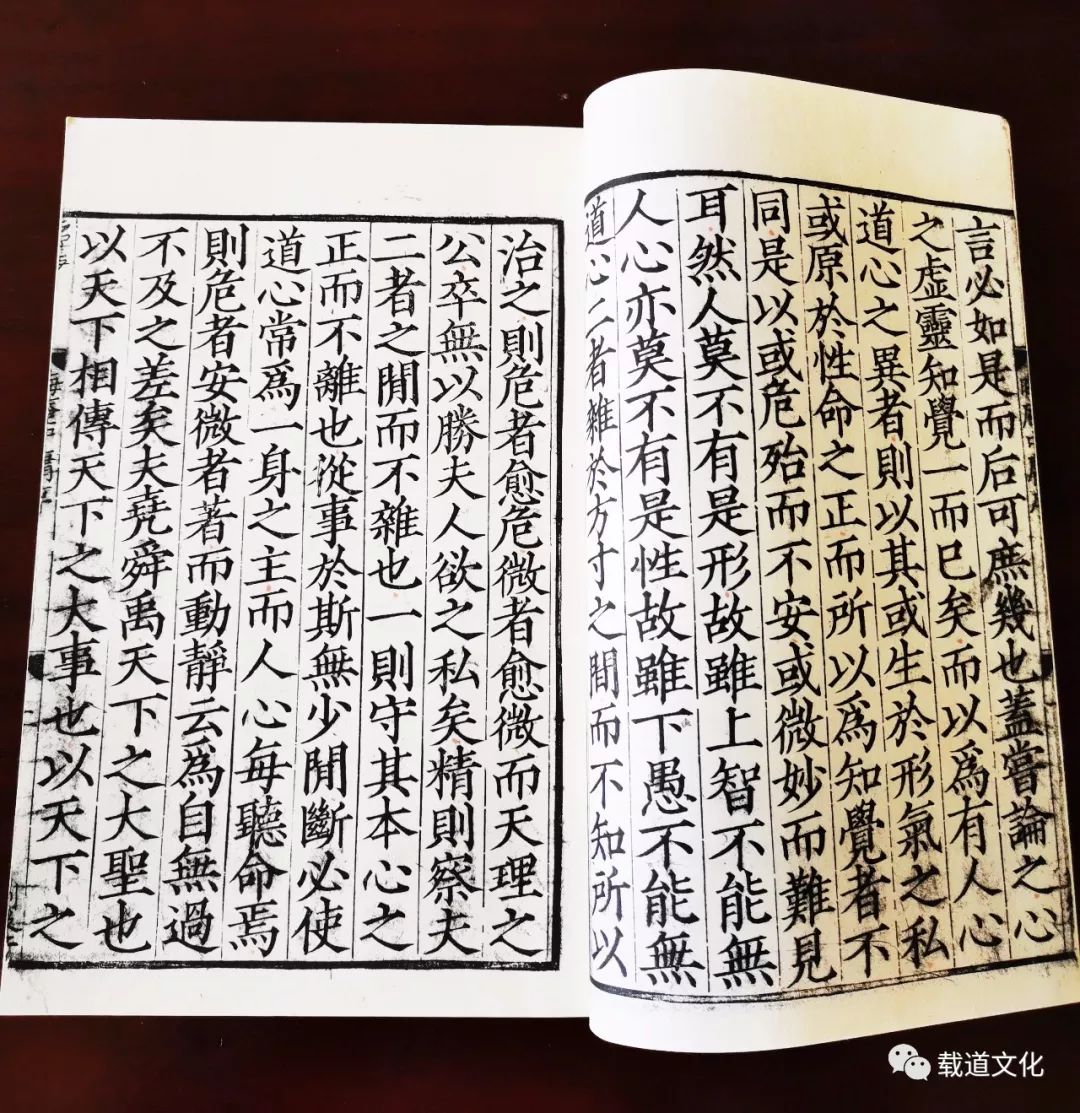 言必如是而后可庶幾也蓋嘗論之心
之虛靈知覺一而已矣而以爲有人心
道心之異者則以其或生於形氣之私
或原於性命之正而所以爲知覺者不
同是以或危殆而不安或微妙而難見
耳然人莫不有是形故雖上智不能無
人心亦莫不有是性故雖下愚不能無
道心二者雜於方寸之間而不知所以
治之則危者愈危微者愈微而天理之
公卒無以勝夫人欲之私矣精則察夫
二者之閒而不雜也一則守其本心之
正而不離也從事於斯無少閒斷必使
道心常爲一身之主而人心每聽命焉
則危者安微者著而動靜云爲自無過
不及之差矣夫堯舜禹天下之大聖也
以天下相傳天下之大事也以天下之
载道文化